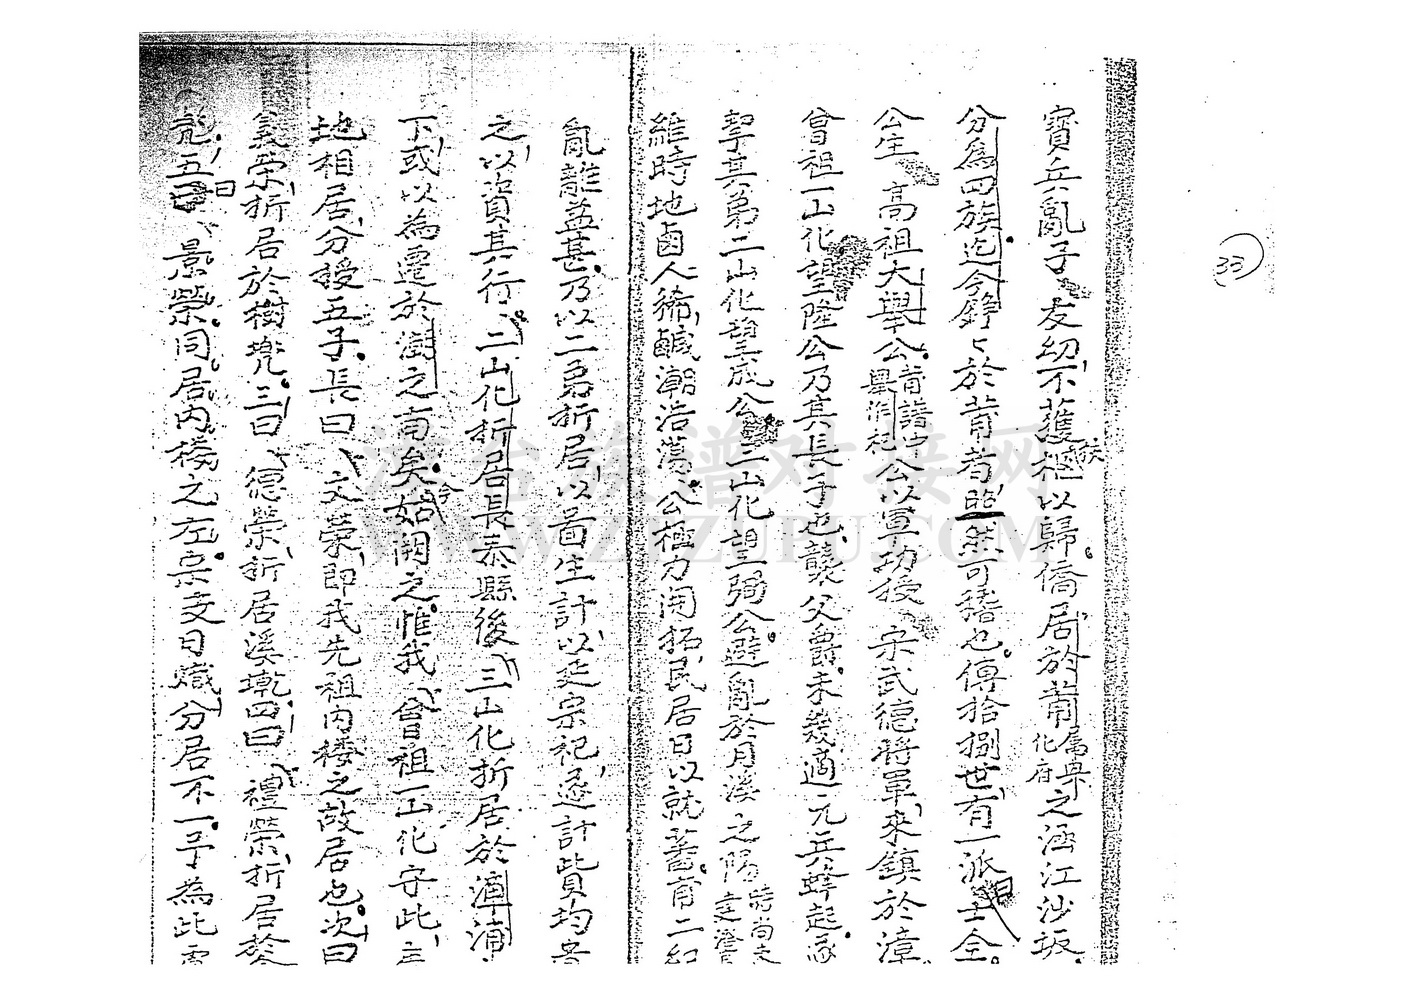 33
寶兵亂子友幼不獲柩以歸僑居於莆屬興化府之濤江沙坂
分為四族迄今錚々於莆者昭然可稽也傳拾捌世有一派曰士全
公生高祖大舉公莆譜大舉作 公以軍功授宋武德將軍來鎮於漳
曾祖一山化望隆公乃其長子也襲父爵未幾適元兵蜂起遂
挈其第二山化望成公三山化望弼公避亂於月溪之陽時尚未
維時地鹵人稀鹹潮浩蕩公極力開拓民居日以就蓄甫二紀
亂離益甚乃以二弟折居以圖生計以延宗祀遂計貲均
之以資其行二山化折居長泰縣後三山化折居於漳浦
下或以為遷於澍之南矣今姑闕之惟我曾祖一山化守此
地相居分授五子長曰文榮即我先祖內樓之故居也次曰
義榮折居於樹兠三曰德榮折居溪墘四曰禮榮折居於
五曰景榮同居內樓之左宗支日熾分居不一予為此
漳台族譜对接网
WWW.ZTZUPU.COM